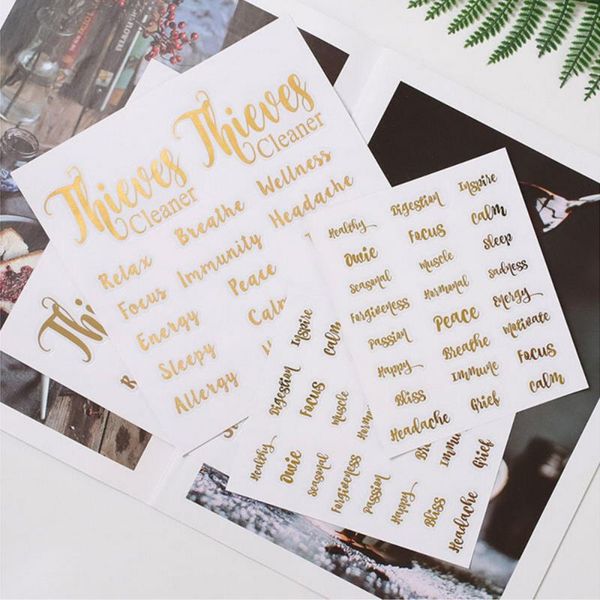 Thieves Thieves
Cleaner Cleaner
Relax Breathe Wellness
Focus Immunity Headache
Energy Peace
Sleepy Calm
Allergy
Thieves
Healthy Digestion Inspire
Owie Focus Calm
seasonal Muscle Sleep
Forgiveness Hormonal sadness
Passion Peace Energy
Happy Breathe Motivate
Bliss Immune Focus
Headache Grief Calm
Healthy Digestion Inspire
Owie Focus Calm
seasonal Muscle
Forgiveness
Passion
Happy
Bliss Immune
Headache Grief